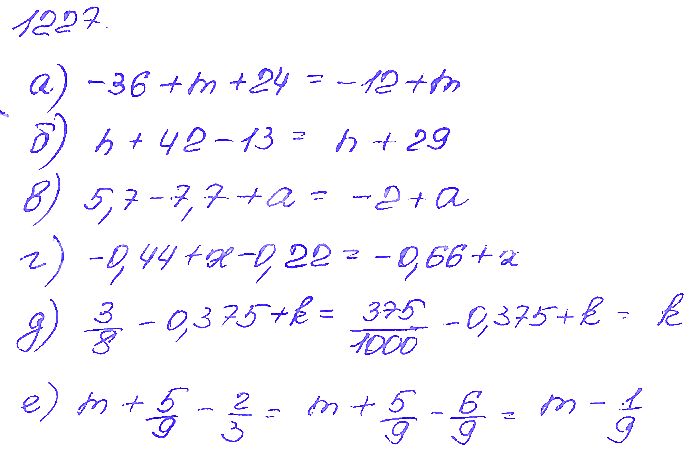 1227.
а) -36 + m + 24 = -12 + m
б) n + 42 - 13 = n + 29
в) 5,7 - 7,7 + a = -2 + a
г) -0,44 + x - 0,22 = -0,66 + x
д) 3/8 - 0,375 + k = 375/1000 - 0,375 + k = k
е) m + 5/9 - 2/3 = m + 5/9 - 6/9 = m - 1/9